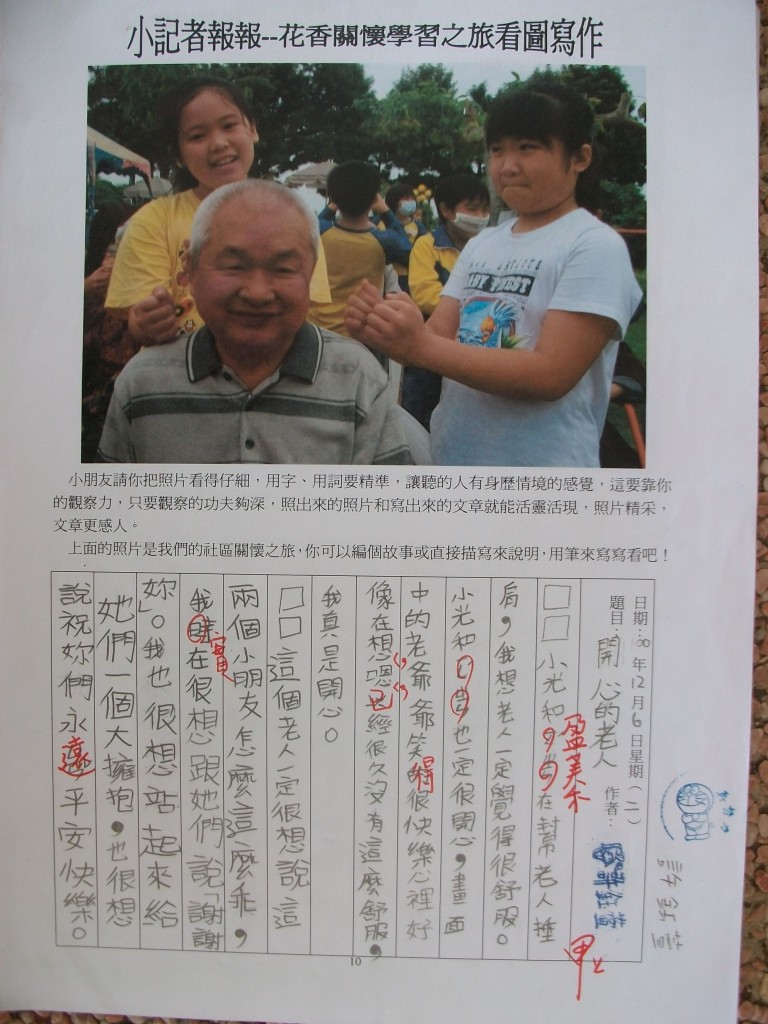 小記者報報--花香關懷學習之旅看圖寫作
小朋友請你把照片看得仔細，用字、用詞要精準，讓聽的人有身歷情境的感覺，這要靠你
的觀察力，只要觀察的功夫夠深，照出來的照片和寫出來的文章就能活靈活現，照片精采，
文章更感人。
上面的照片是我們的社區關懷之旅，你可以編個故事或直接描寫來說明，用筆來寫寫看吧！
日期：00年12月6日星期（二）
題目：開心的老人 作者：
許鈺萱
甲上
□□小光和在幫老人捶
盈蓁
肩，我想老人一定覺得很舒服。
小光和也一定很開心，畫面
中的老爺爺笑得很快樂心裡好
像在想嗯已經很久沒有這麼舒服，
我真是開心。
□□這個老人一定很想說這
兩個小朋友怎麼這麼乖，
我實在很想跟她們說「謝謝
妳」。我也很想站起來給
她們一個大擁抱，也很想
說祝妳們永遠平安快樂。
10